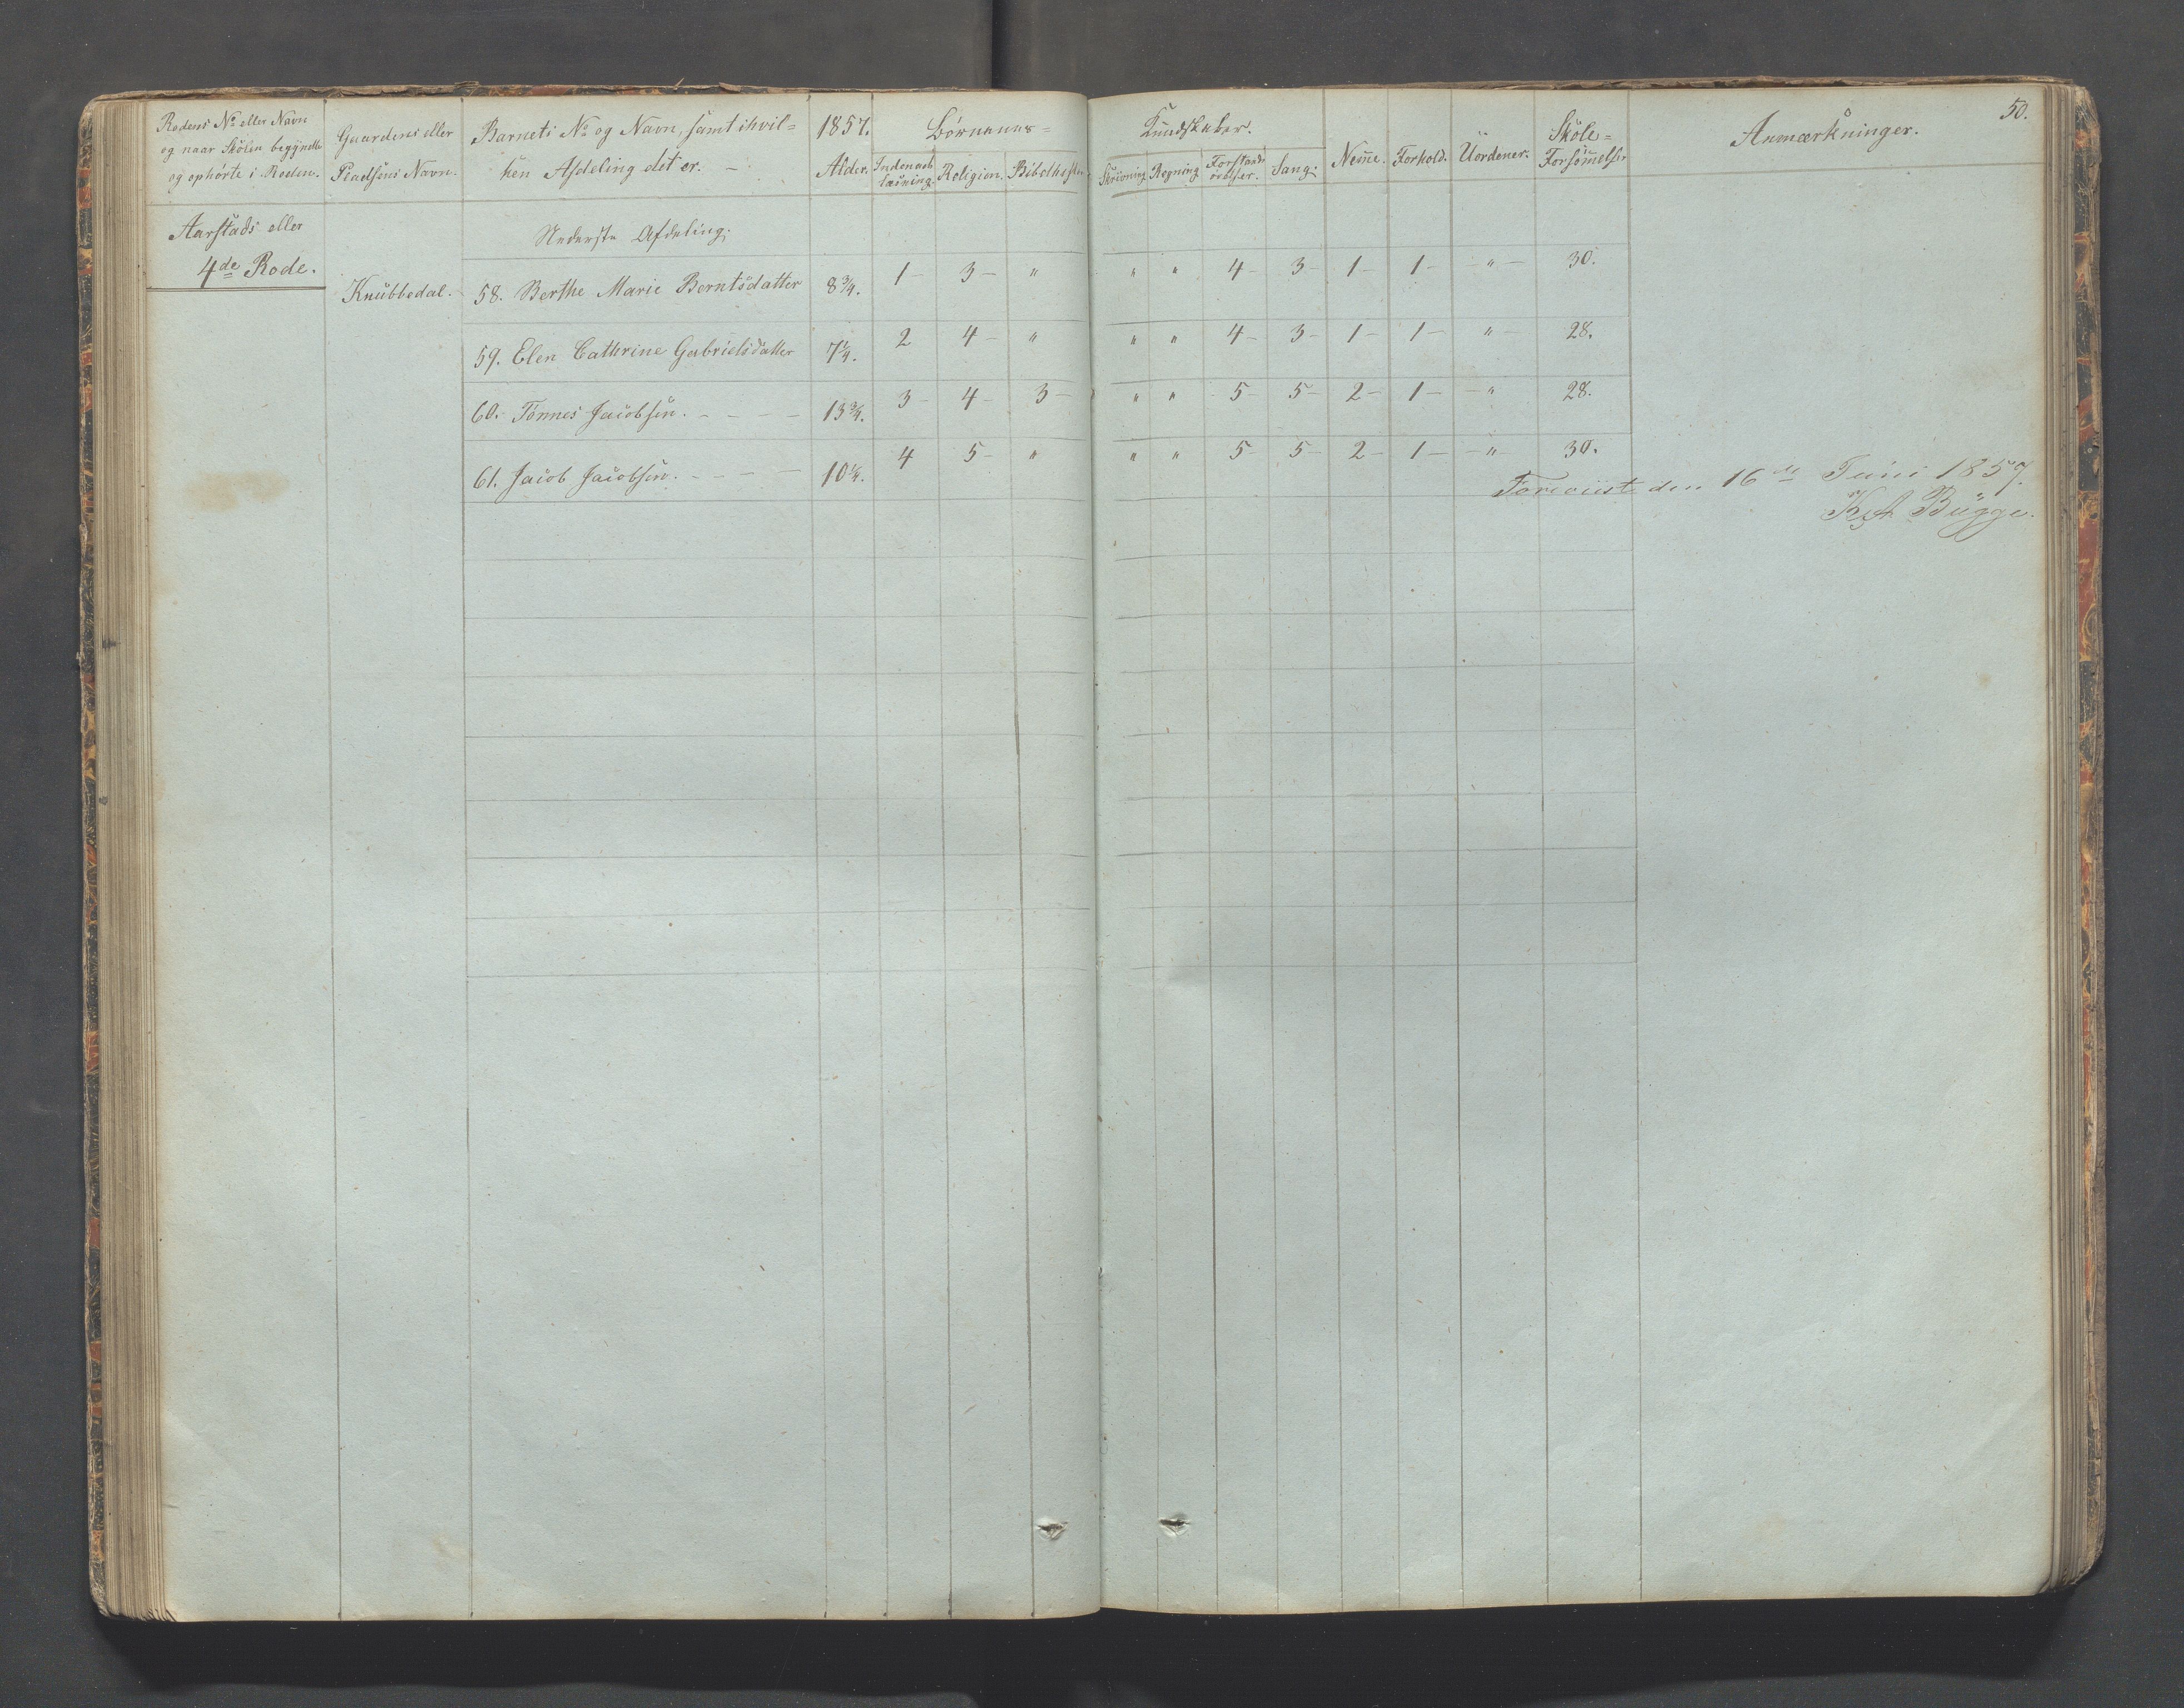 50.
Rodens No eller Navn
og naar Skolen begyndte
og ophørte i Roden.
Gaardens eller
Pladsens Navn.
Barnets No og Navn, samt ihvil=
ken Afdeling det er. –
1857.
Alder.
Børnenes=
Indenad=
læsning.
Religion.
Bibelhist.
Kundskaber.
Skrivning
Regning
Forstands
øvelser.
Sang.
Nem̅e.
Forhold.
Uordener.
Skole=
Forsøm̅elser
Anmærkninger.
Aarstads eller
4de Rode.
Nederste Afdeling.
Knubbedal. 58. Berthe Marie Berntsdatter 8 3/4. 1 – 3 – " " " 4 – 3 – 1 – 1 – " – 30.
59. Elen Cathrine Gabrielsdatter 7 1/4. 2 4 – " " " 4 – 3 – 1 – 1 – " – 28.
60. Tønnes Jacobsen. – – – – 13 3/4. 3 – 4 – 3 – " " 5 – 5 – 2 – 1 – – " 28.
61. Jacob Jacobsen. – – – 10 1/4. 4 5 – " " " 5 – 5 – 2 – 1 – – " – 30.
Foreviist den 16de Juni 1857.
Bugge.